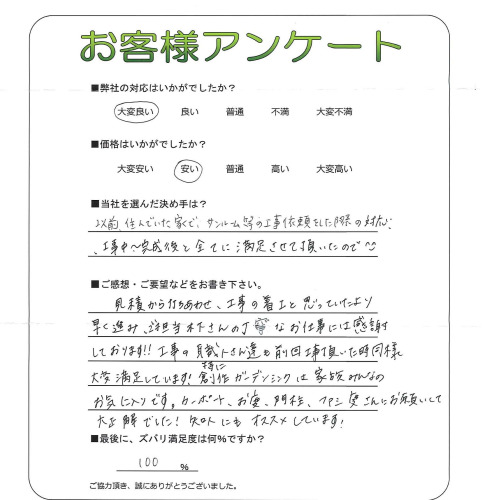 お客様アンケート
■弊社の対応はいかがでしたか?
大変良い 良い 普通 不満 大変不満
■価格はいかがでしたか?
大変安い 安い 普通 高い 大変高い
■当社を選んだ決め手は?
以前、住んでいた家で、サンルーム等の工事依頼をした際の対応、
、工事中〜完成後と全てに満足させて頂いたので
■ご感想・ご要望などをお書き下さい。
見積から打ちあわせ、工事の着工と思っていたより
早く進み、担当木下さんの丁寧なお仕事には感謝
しております!!工事の職人さん達も前回工事頂いた時同様
大変満足しています!特に創作ガーデンシンクは家族みんなの
お気に入りです。カーポート、お庭、門柱、さんにお願いして
大正解でした!知人にもオススメしています!
■最後に、ズバリ満足度は何%ですか?
100 %
ご協力頂き、誠にありがとうございました。